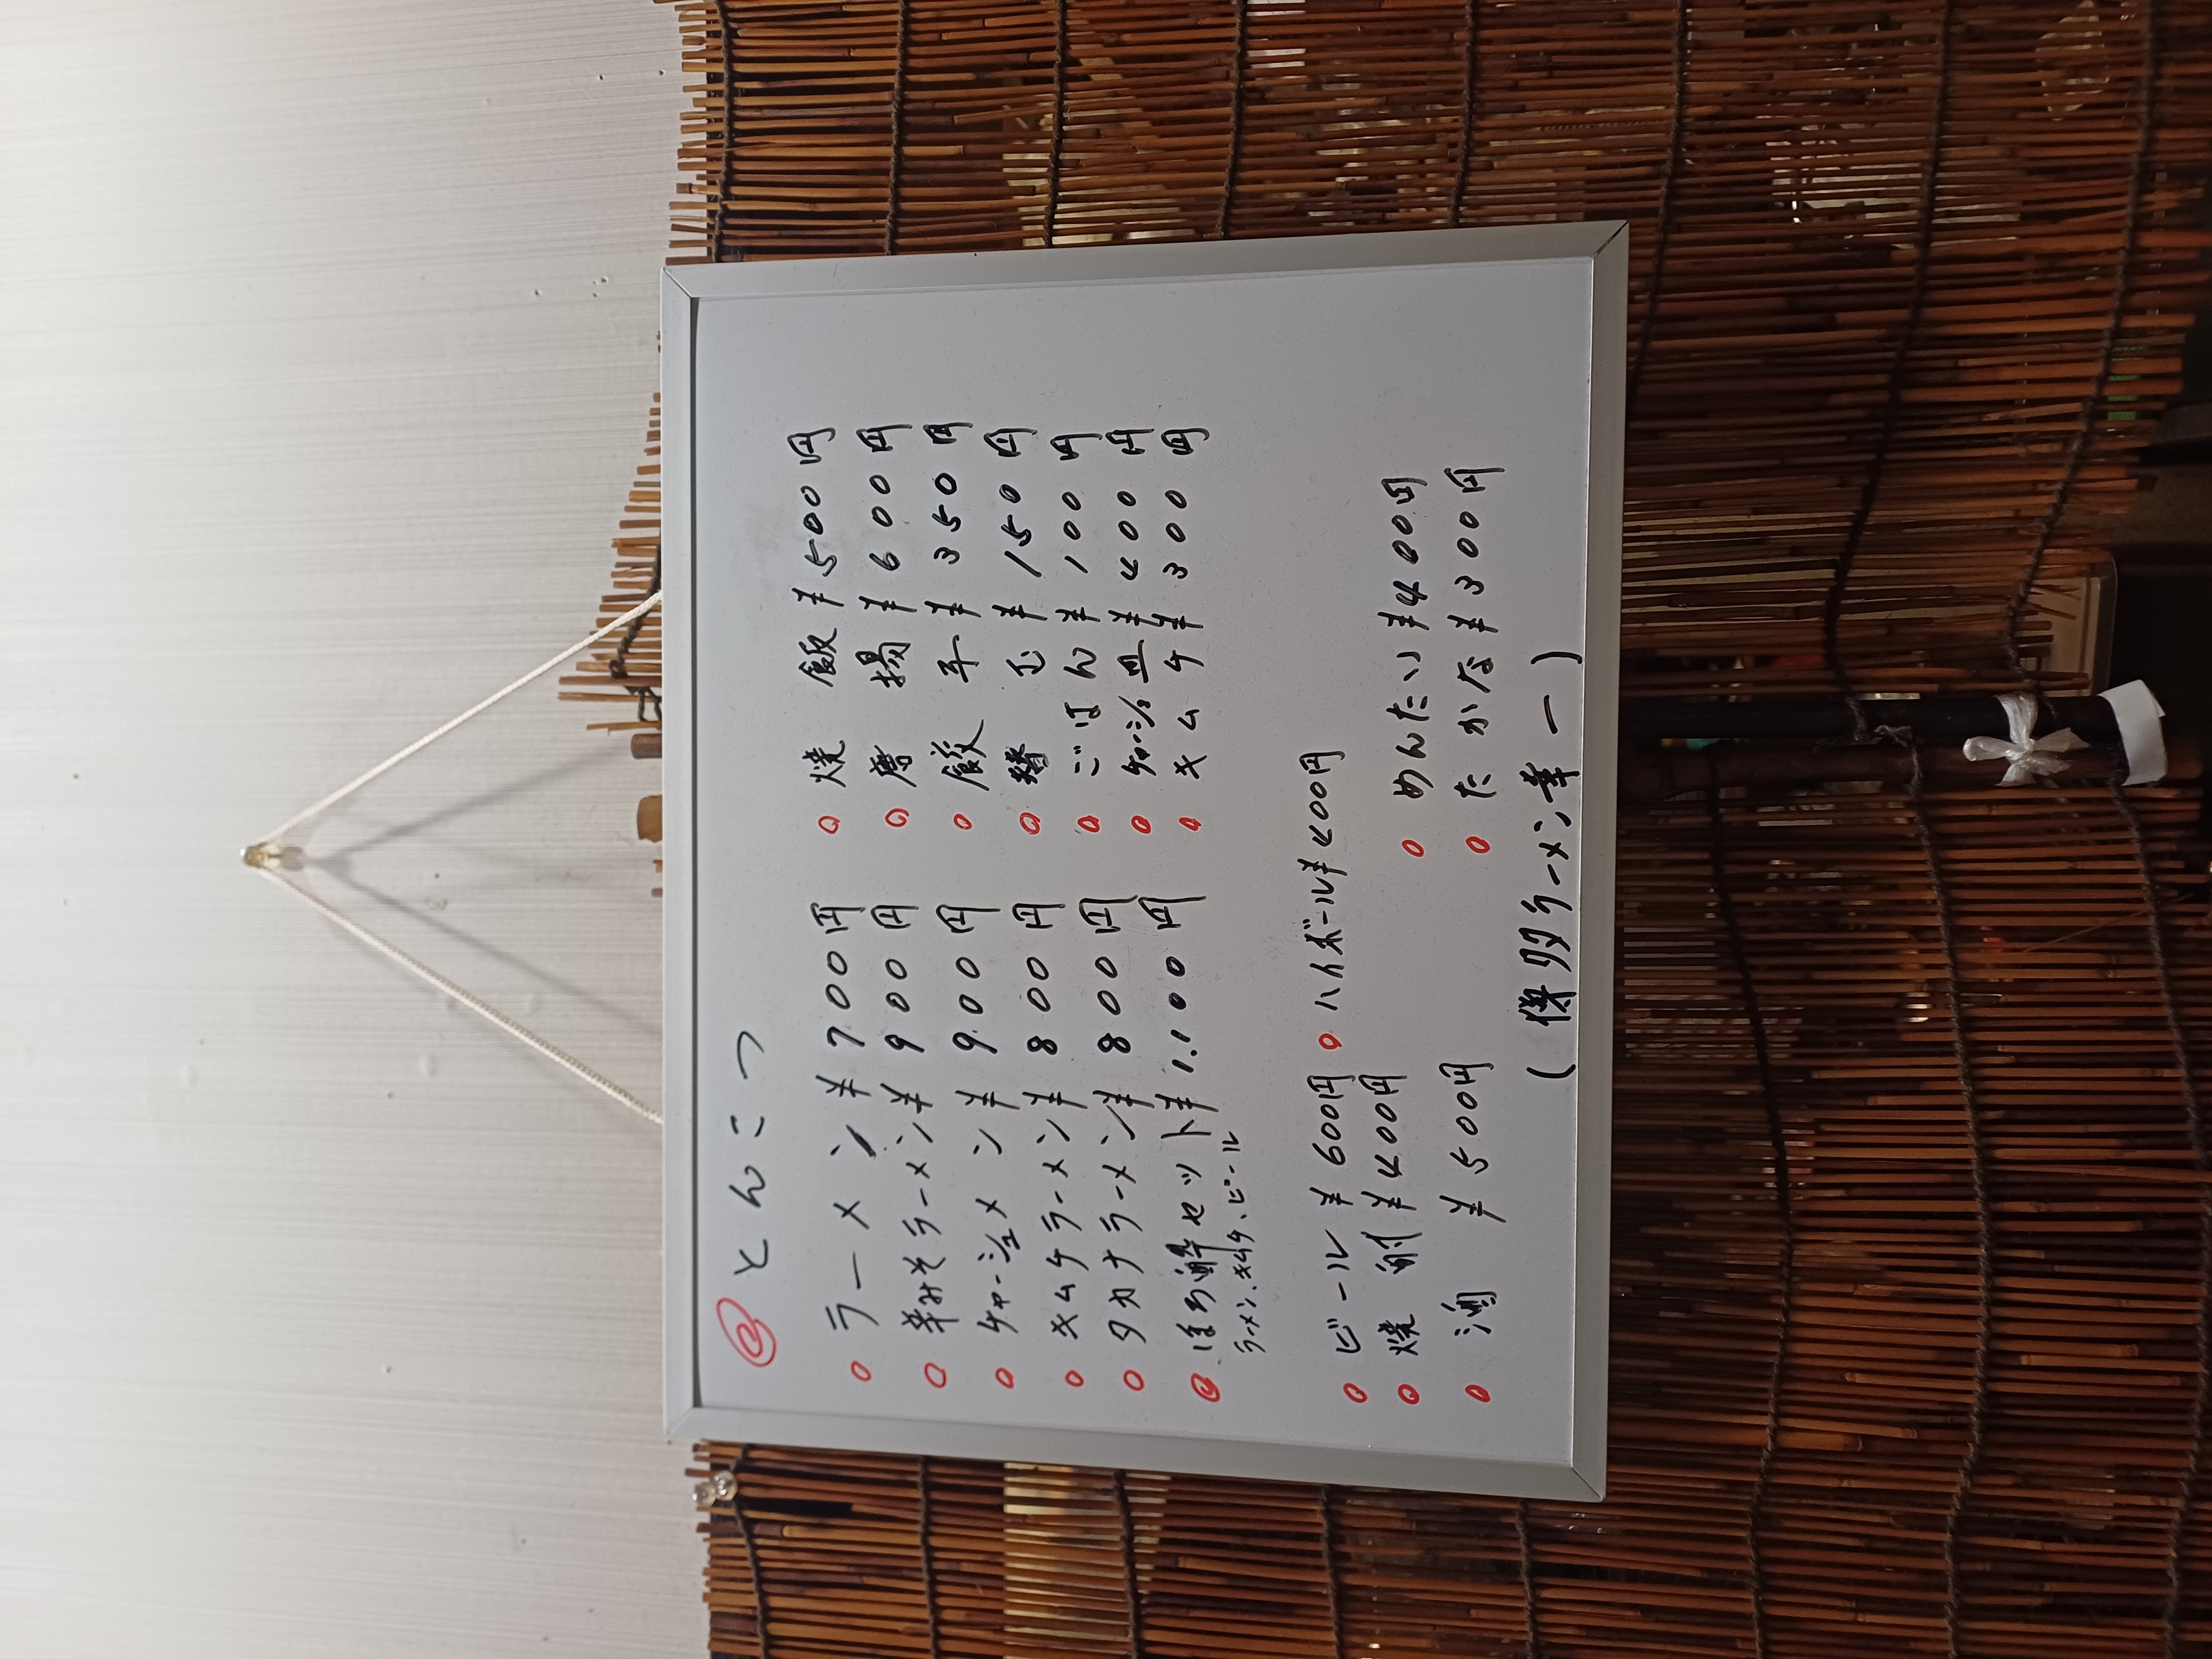 とんこつ
ラーメン ¥700円
辛みそラーメン ¥900円
チャーシュメン ¥900円
キムチラーメン ¥800円
タカナラーメン ¥800円
ほろ酔セット ¥1.100円
ラーメン、キムチ、ビール
焼飯 ¥500円
唐揚 ¥600円
餃子 ¥350円
替玉 ¥150円
ごはん ¥100円
チャーシュ皿 ¥400円
キムチ ¥300円
ビール ¥600円
ハイボール ¥400円
焼酎 ¥400円
酒 ¥500円
めんたい ¥400円
たかな ¥300円
(博多ラーメン幸一)